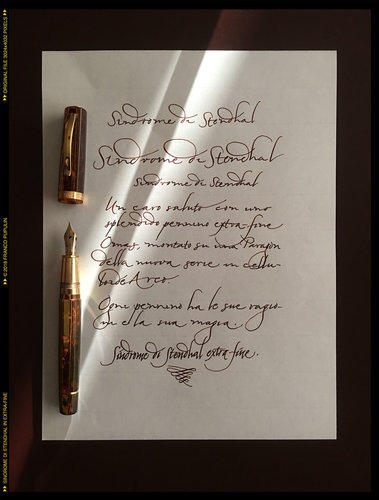 Sindrome di Stendhal
Sindrome di Stendhal
Sindrome di Stendhal
Un caro saluto con uno
splendido pennino extra-fine
Omas, montato su una Paragon
della nuova serie in cellu-
loide Arco.
Ogni pennino ha le sue ragio-
ni e la sua magia.
Sindrome di Stendhal extra-fine.
SINDROME DI STENDHAL IN EXTRA-FINE
© 2019 FRANCO PUPULIN
ORIGINAL FILE 3024x4032 PIXELS